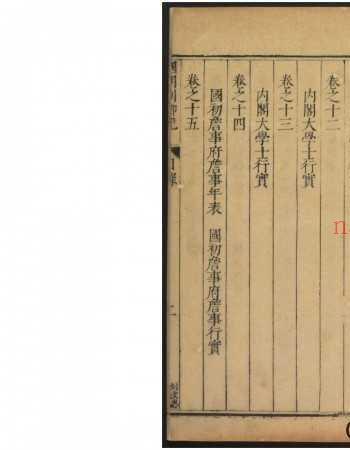 卷之十二
內閣大學士行實
卷之十三
內閣大學士行實
卷之十四
國初詹事府詹事年表 國初詹事府詹事行實
卷之十五
目錄
二
n